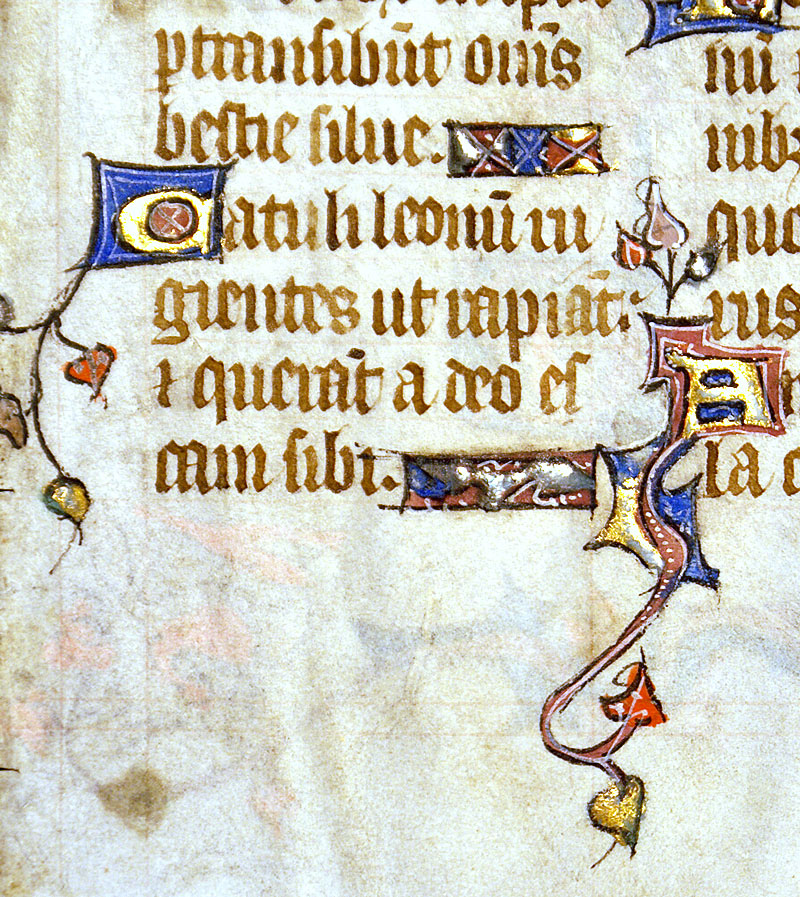 ꝑtransibūt om̄s
bestie silue.
Catuli leonū ru
gientes ut rapiāt:
⁊ querāt a deo es
cam sibi.
nū
nibꝫ
que
rus
la c